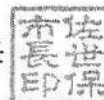 佐世保
市長印